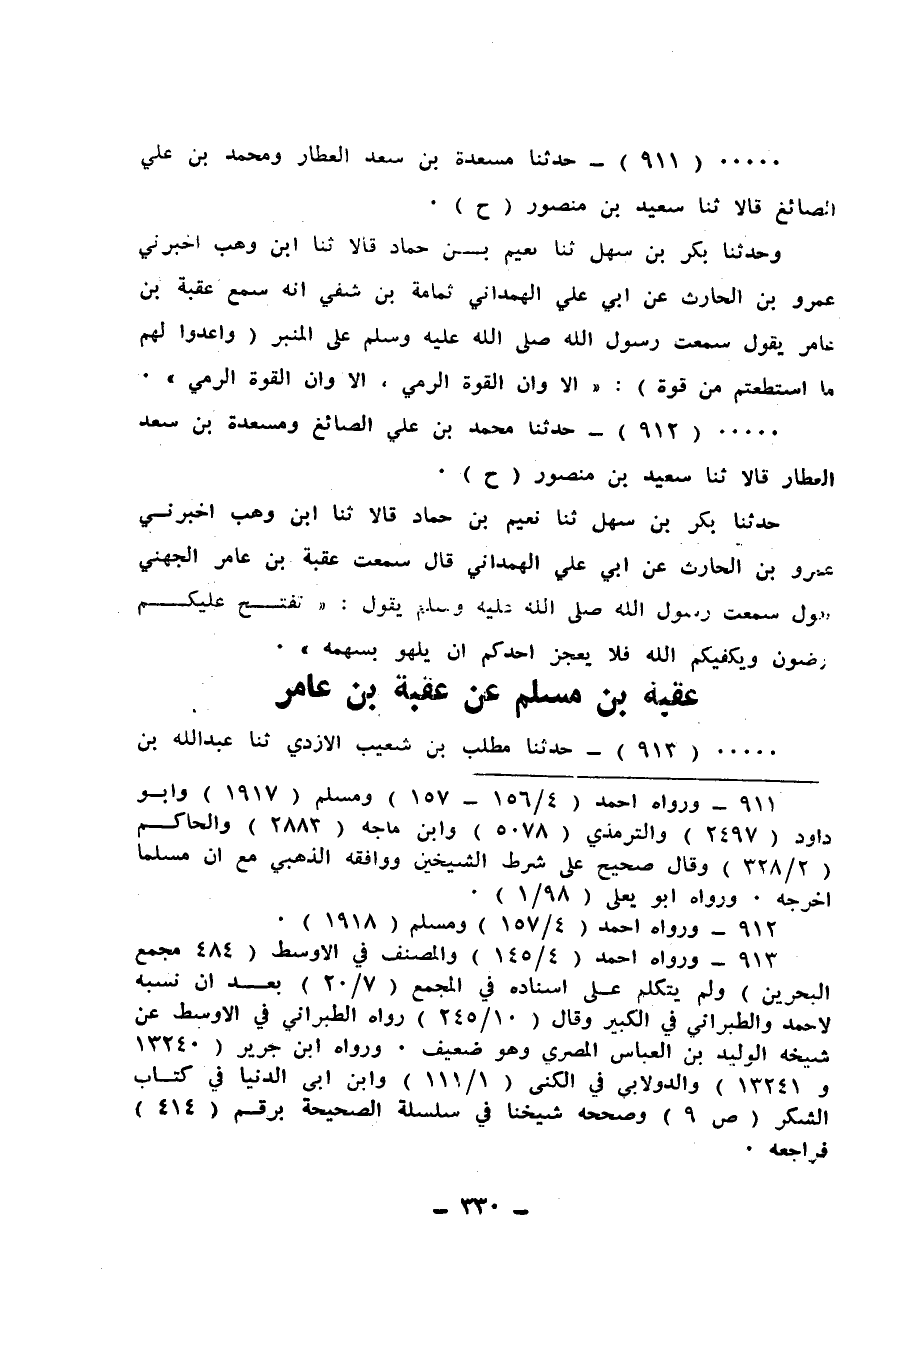 ٠٠٠٠٠ ( ٩١١ ) ــ حدثنا مسعدة بن سعد العطار ومحمد بن علي
الصائغ قالا ثنا سعيد بن منصور ( ح ) ٠
وحدثنا بكر بن سهل ثنا نعيم بـــن حماد قالا ثنا ابن وهب اخبرني
عمرو بن الحارث عن ابي علي الهمداني ثمامة بن شفي انه سمع عقبة بن
عامر يقول سمعت رسول الله صلى الله عليه وسلم على المنبر ( واعدوا لهم
ما استطعتم من قوة ) : « الا وان القوة الرمي ، الا وان القوة الرمي » ٠
٠٠٠٠٠ ( ٩١٢ ) ــ حدثنا محمد بن علي الصائغ ومسعدة بن سعد
العطار قالا ثنا سعيد بن منصور ( ح ) ٠
حدثنا بكر بن سهل ثنا نعيم بن حماد قالا ثنا ابن وهب اخبرنـي
عمرو بن الحارث عن ابي علي الهمداني قال سمعت عقبة بن عامر الجهني
يقول سمعت رسول الله صلى الله عليه وسلم يقول : « تفتـــح عليكـــم
رضون ويكفيكم الله فلا يعجز احدكم ان يلهو بسهمه » ٠
عقبة بن مسلم عن عقبة بن عامر
٠٠٠٠٠ ( ٩١٣ ) ــ حدثنا مطلب بن شعيب الازدي ثنا عبدالله بن
٩١١ ــ ورواه احمد ( ١٥٦/٤ ــ ١٥٧ ) ومسلم ( ١٩١٧ ) وابـو
داود ( ٢٤٩٧ ) والترمذي ( ٥٠٧٨ ) وابن ماجه ( ٢٨٨٣ ) والحاكـــم
( ٣٢٨/٢ ) وقال صحيح على شرط الشيخين ووافقه الذهبي مع ان مسلما
اخرجه ٠ ورواه ابو يعلى ( ١/٩٨ ) ٠
٩١٢ ــ ورواه احمد ( ١٥٧/٤ ) ومسلم ( ١٩١٨ ) ٠
٩١٣ ــ ورواه احمد ( ١٤٥/٤ ) والمصنف في الاوسط ( ٤٨٤ مجمع
البحرين ) ولم يتكلم علـى اسناده في المجمع ( ٢٠/٧ ) بعـــد ان نسبه
لاحمد والطبراني في الكبير وقال ( ٢٤٥/١٠ ) رواه الطبراني في الاوسط عن
شيخه الوليد بن العباس المصري وهو ضعيف ٠ ورواه ابن جرير ( ١٣٢٤٠
و ١٣٢٤١ ) والدولابي في الكنى ( ١١١/١ ) وابن ابي الدنيا في كتـاب
الشكر ( ص ٩ ) وصححه شيخنا في سلسلة الصحيحة برقـم ( ٤١٤ )
فراجعه ٠
ــ ٣٣٠ ــ